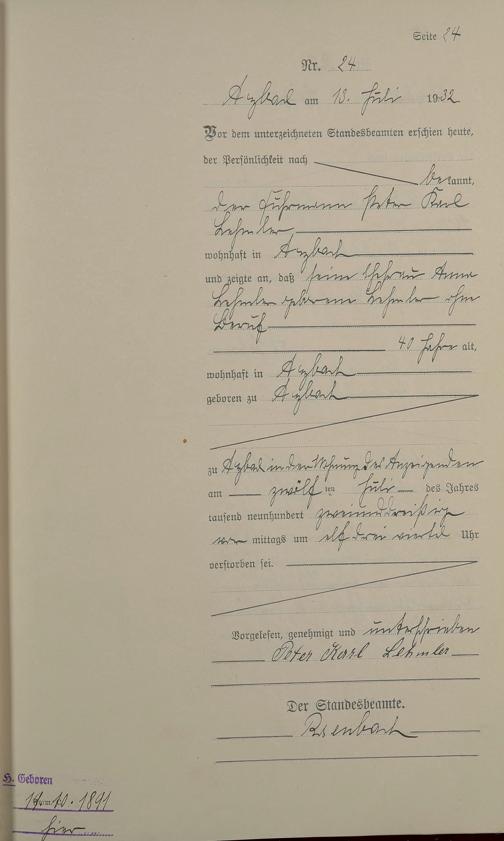 Seite 24
Nr. 24
Arzbach am 13. Juli 1932
Vor dem unterzeichneten Standesbeamten erschien heute,
der Persönlichkeit nach
bekannt,
der Fuhrmann Peter Karl
Lehmler
wohnhaft in Arzbach
und zeigte an, daß seine Ehefrau Anna
Lehmler geborene Lehmler ohne
Beruf
40 Jahre alt,
wohnhaft in Arzbach
geboren zu Arzbach
zu Arzbach in der Wohnung des Anzeigenden
am zwölften Juli des Jahres
tausend neunhundert zweiunddreißig
vormittags um elf drei viertel Uhr
verstorben sei.
Vorgelesen, genehmigt und unterschrieben
Peter Karl Lehmler
Der Standesbeamte.
H. Geboren
10. 1891
hier